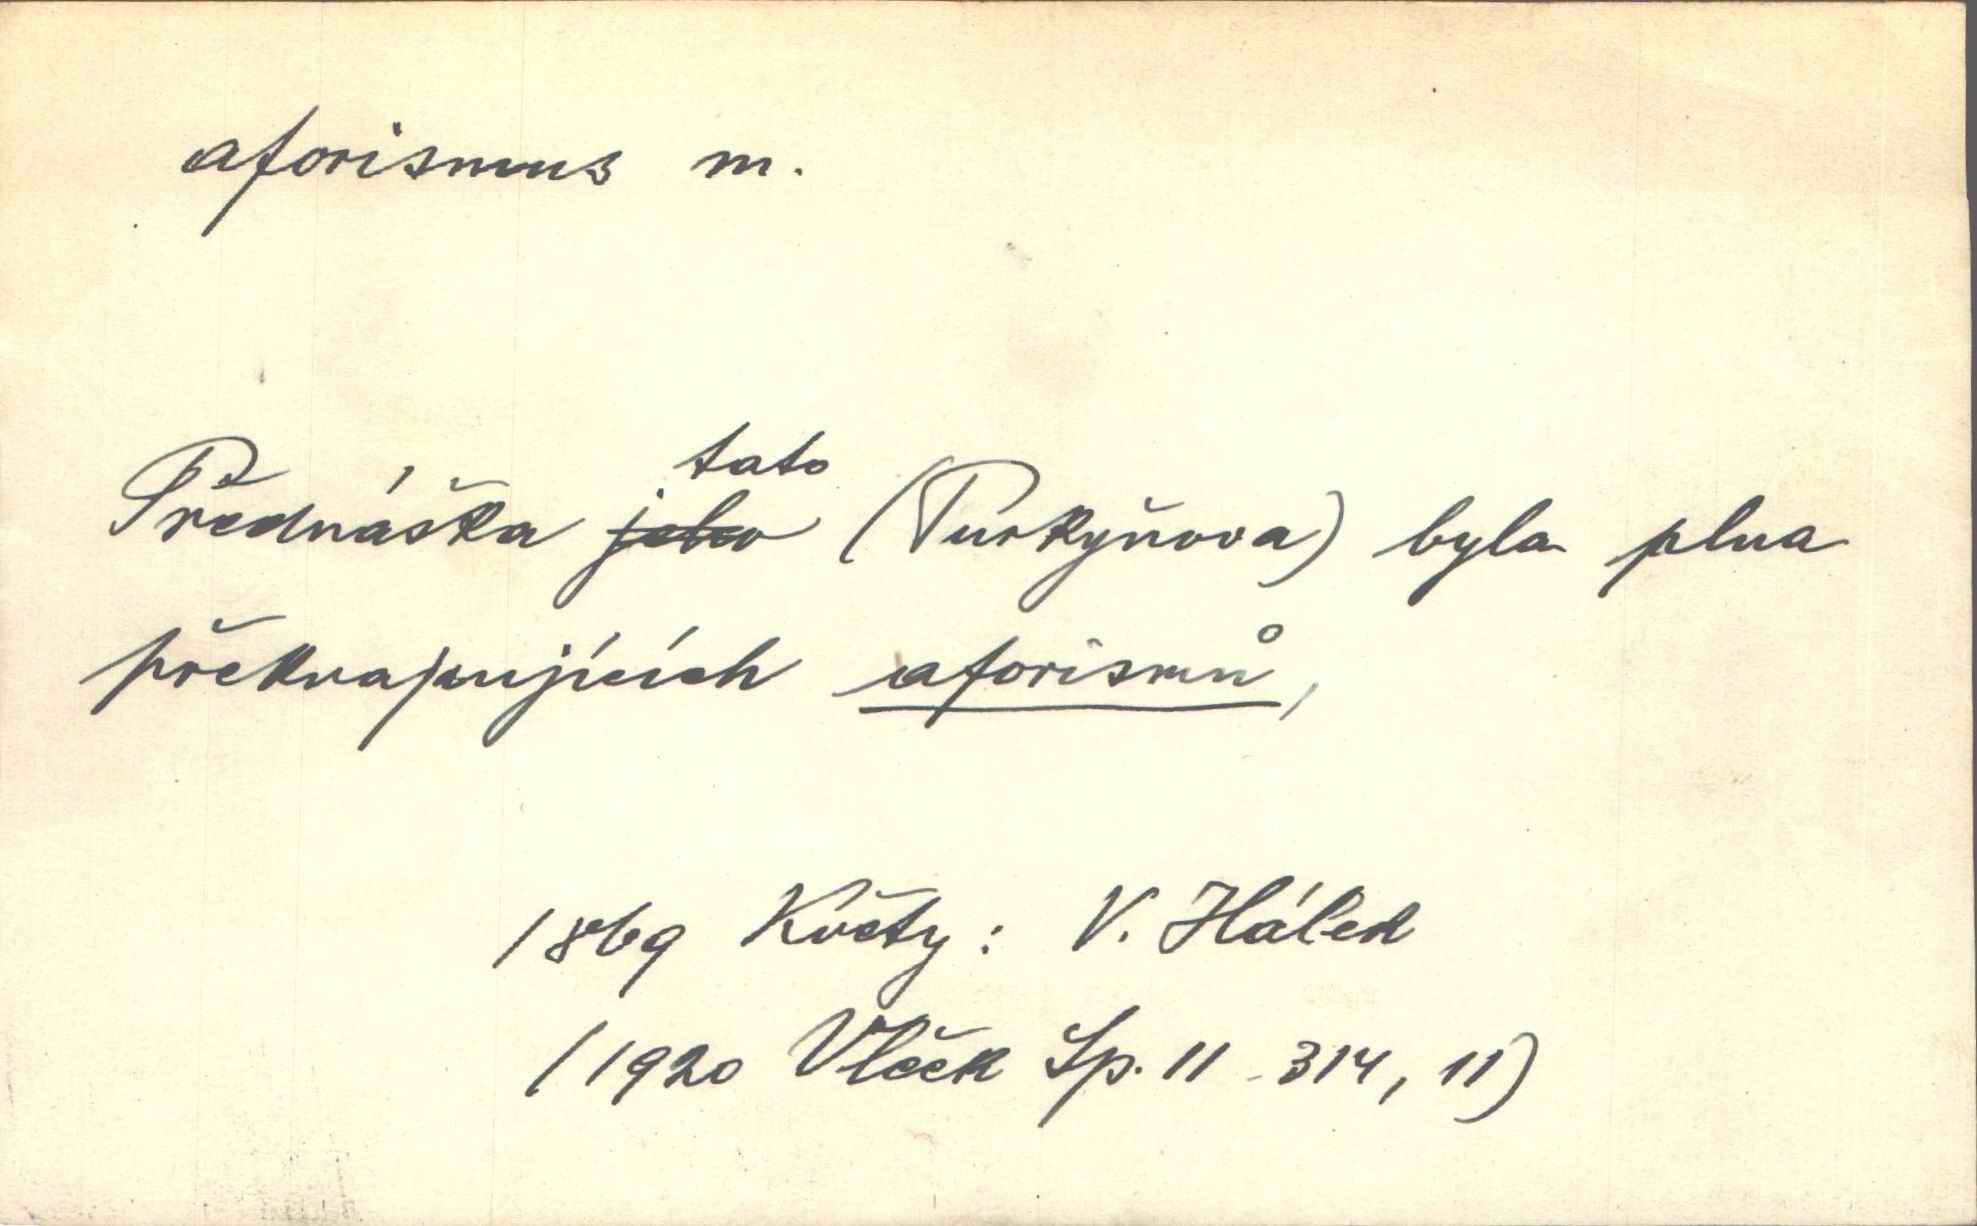 aforismus m.
tato
Přednáška jeho (Purkyňova) byla plna
překvapujících aforismů,
1869 Květy: V. Hálek
(1920 Vlček Sp. II 314, 11)